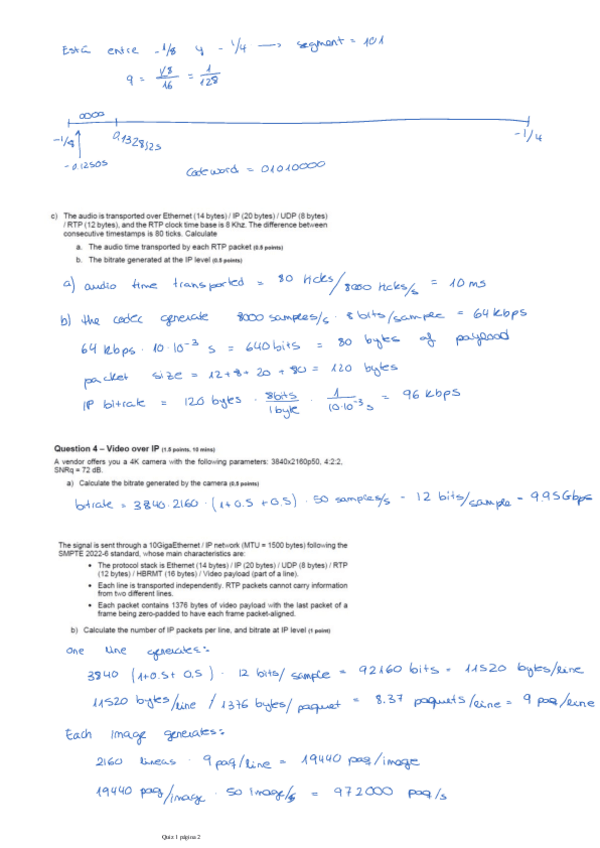 Está entre -1/8 y -1/4 → segment = 101
q = 1/8 / 16 = 1/128
0000
-1/8 0,1328125 -1/4
-0.12505
Codeword = 01010000
c) The audio is transported over Ethernet (14 bytes) / IP (20 bytes) / UDP (8 bytes)
/ RTP (12 bytes), and the RTP clock time base is 8 Khz. The difference between
consecutive timestamps is 80 ticks. Calculate
a. The audio time transported by each RTP packet (0.5 points)
b. The bitrate generated at the IP level (0.5 points)
a) audio time transported = 80 ticks/8000 ticks/s = 10 ms
b) the codec generate 8000 samples/s · 8 bits/sample = 64 kbps
64 kbps · 10·10⁻³ s = 640 bits = 80 bytes of payload
packet size = 12 + 8 + 20 + 80 = 120 bytes
IP bitrate = 120 bytes · 8bits/1byte · 1/10·10⁻³s = 96 kbps
Question 4 – Video over IP (1.5 points, 10 mins)
A vendor offers you a 4K camera with the following parameters: 3840x2160p50, 4:2:2,
SNRq = 72 dB.
a) Calculate the bitrate generated by the camera (0.5 points)
bitrate = 3840·2160 · (1+0.5 +0.5) · 50 samples/s - 12 bits/sample - 9.95Gbps
The signal is sent through a 10GigaEthernet / IP network (MTU = 1500 bytes) following the
SMPTE 2022-6 standard, whose main characteristics are:
• The protocol stack is Ethernet (14 bytes) / IP (20 bytes) / UDP (8 bytes) / RTP
(12 bytes) / HBRMT (16 bytes) / Video payload (part of a line).
• Each line is transported independently. RTP packets cannot carry information
from two different lines.
• Each packet contains 1376 bytes of video payload with the last packet of a
frame being zero-padded to have each frame packet-aligned.
b) Calculate the number of IP packets per line, and bitrate at IP level (1 point)
One line generates:
3840 (1+0.5+ 0.5) · 12 bits/ sample = 92160 bits = 11520 bytes/line
11520 bytes/line / 1376 bytes/ paquet = 8.37 paquets/line = 9 paq/line
Each image generates:
2160 lineas · 9 paq/line = 19440 paq/image
19440 paq/image · 50 image/s = 972000 paq/s
Quiz 1 página 2